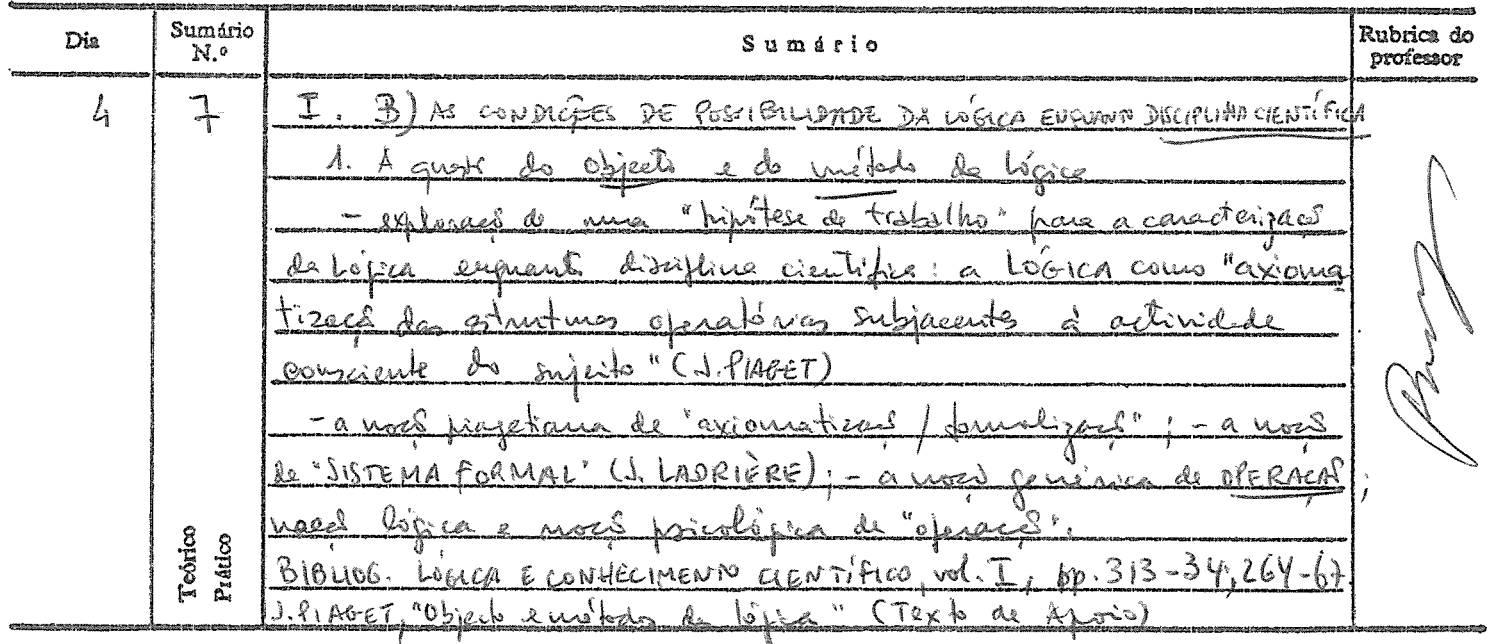 Dia Sumário N.º Sumário Rubrica do professor
4 7 I. B) AS CONDIÇÕES DE POSSIBILIDADE DA LÓGICA ENQUANTO DISCIPLINA CIENTÍFICA
1. A questã do objecto e do método da lógica
- exploraçã de uma "hipótese de trabalho" para a caracterizaçã
da Lógica enquanto disciplina científica: a LÓGICA como "axioma
tizaçã das estruturas operatórias subjacentes à actividade
consciente do sujeito" (J. PIAGET)
- a noçã piagetiana de "axiomatizaçã / formalizaçã"; - a noçã
de "SISTEMA FORMAL" (J. LADRIÈRE); - a noçã genérica de OPERAÇÃ;
noçã lógica e noçã psicológica de "operaçã".
BIBLIOG. LÓGICA E CONHECIMENTO CIENTÍFICO, vol. I, pp. 313-34; 264-67.
J. PIAGET, "Objecto e método da lógica" (Texto de Apoio)
Teórico
Prático